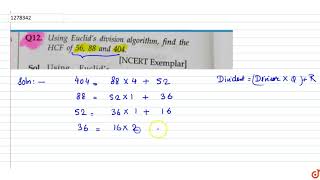 1278342
Q12. Using Euclid's division algorithm, find the
HCF of 56, 88 and 404.
[NCERT Exemplar]
Soln:- 404 = 88 × 4 + 52
Dividend = (Divisor × Q) + R
88 = 52 × 1 + 36
52 = 36 × 1 + 16
36 = 16 × 2